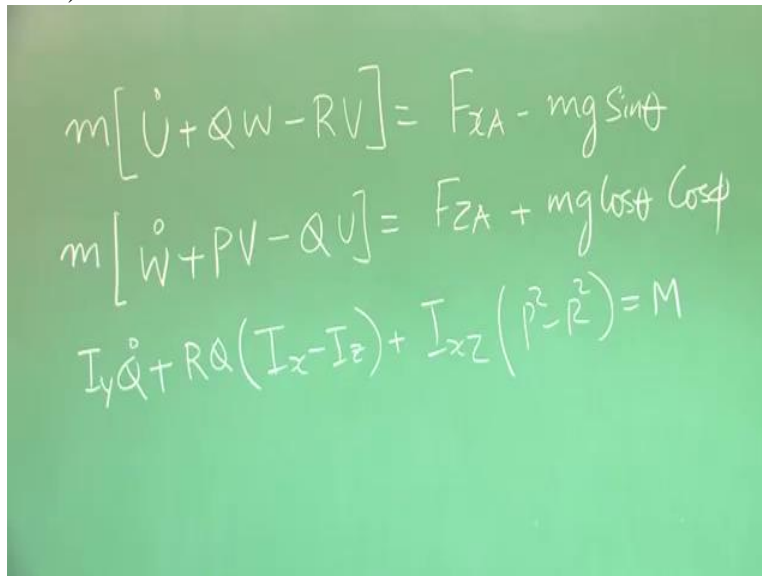 m[U̇+QW-RV]= F_{xA} - mg Sinθ
m[Ẇ+PV-QU]= F_{ZA} + mg Cosθ Cosφ
I_yQ̇+RQ(I_x-I_z)+ I_{xz}(P²-R²)=M